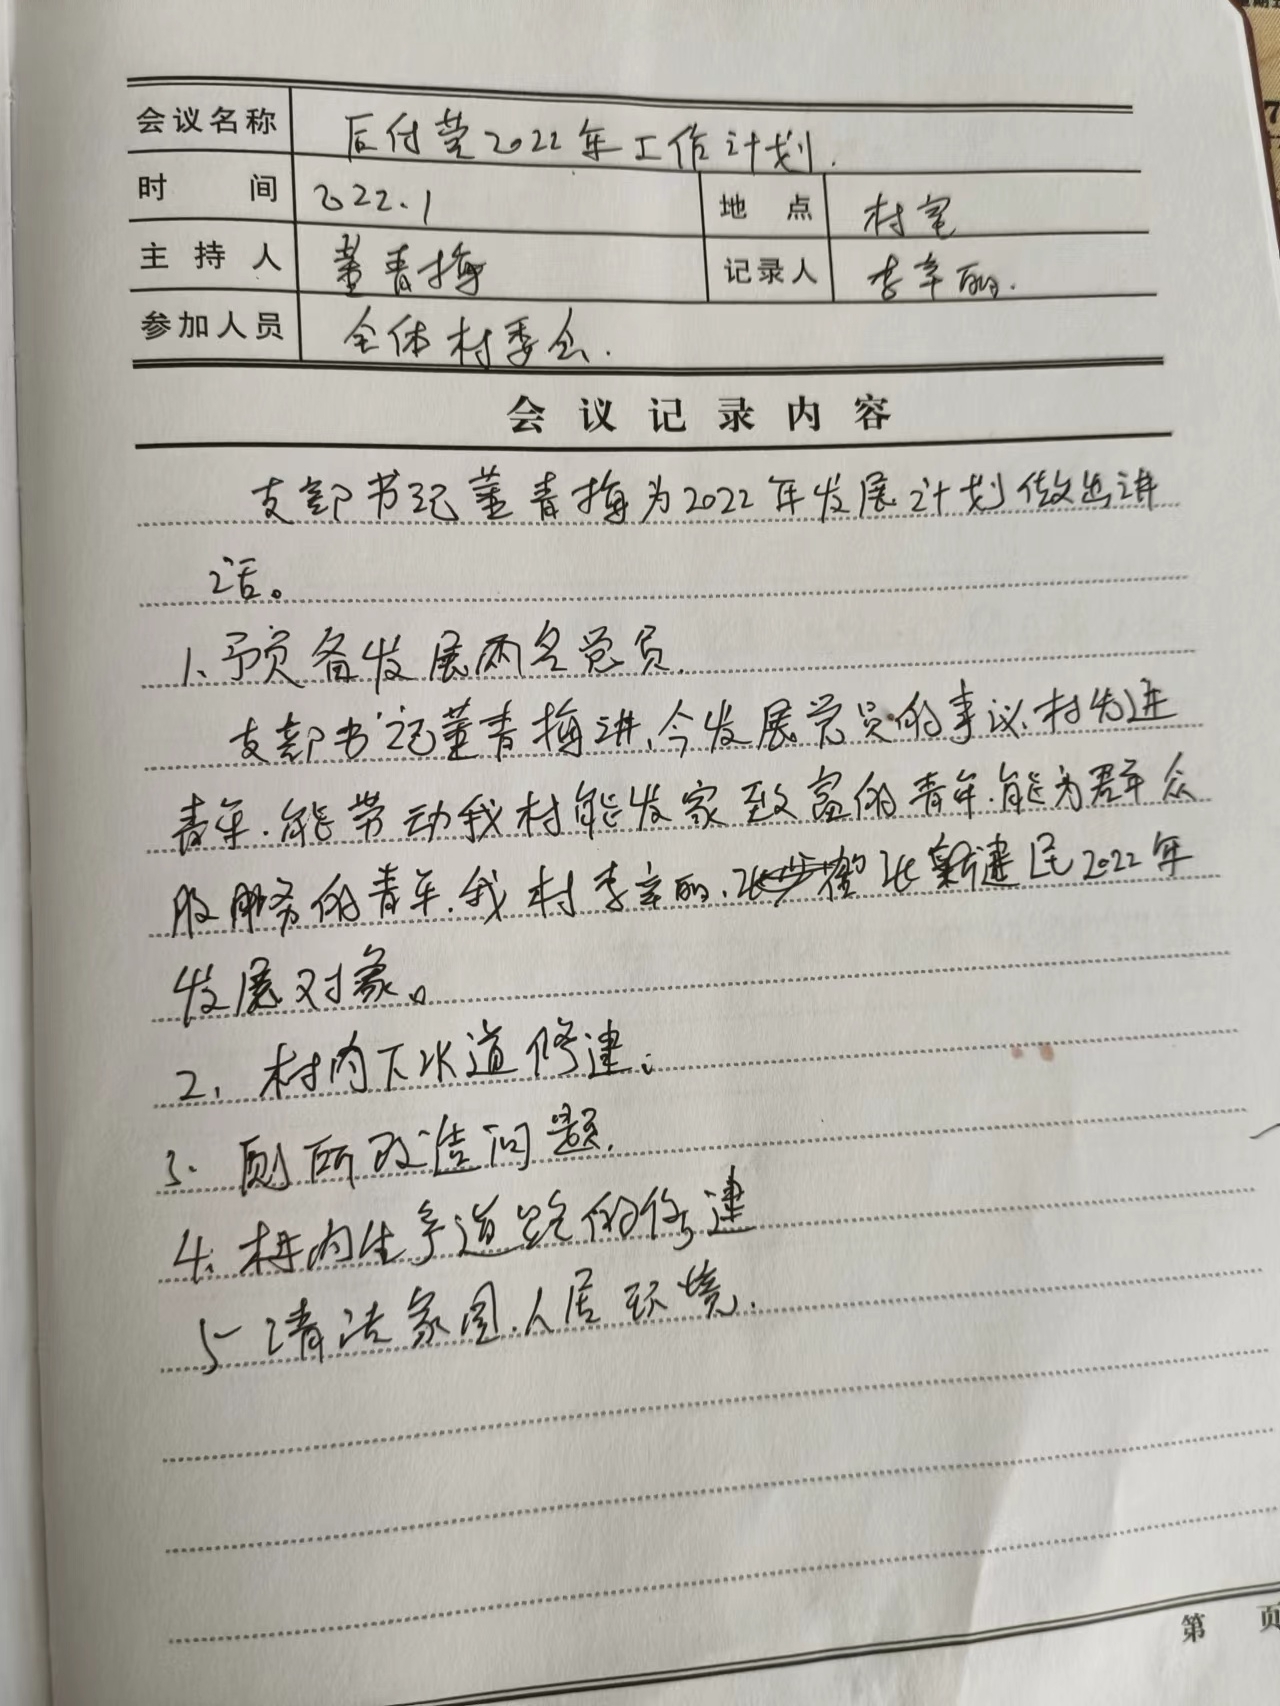 会议名称 后付营2022年工作计划.
时间 2022.1 地点 村室
主持人 董青梅 记录人 李辛丽.
参加人员 全体村委会.
会议记录内容
支部书记董青梅为2022年发展计划做出讲
话。
1、预备发展两名党员.
支部书记董青梅讲,今发展党员的事议,村先进
青年.能带动我村能发家致富的青年.能为群众
服务的青年.我村李辛丽、张新建 民2022年
发展对象。
2、村内下水道修建.
3. 厕所改造问题.
4. 村内生产道路的修建
5 清洁家园.人居环境.
第 页